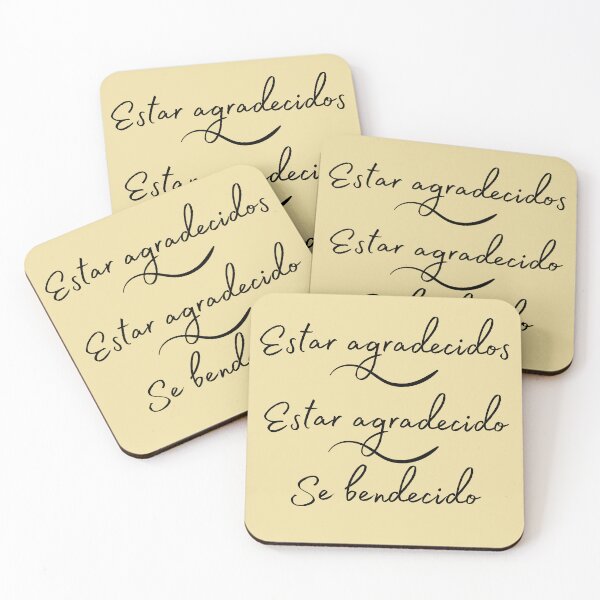 Estar agradecidos
Estar agradecidos
Estar agradecido
Estar agradecidos
Estar agradecido
Se
Estar agradecidos
Estar agradecido
Se bendecido